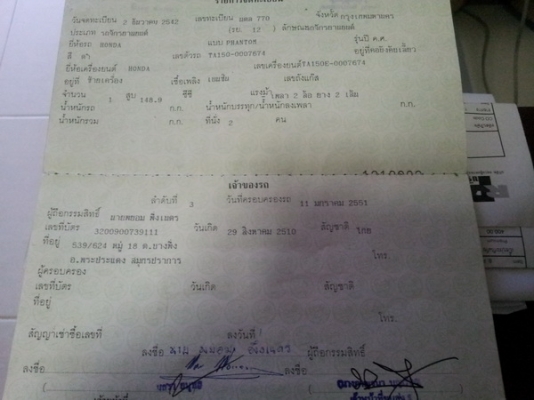 รายการจดทะเบียน
วันจดทะเบียน 2 ธันวาคม 2542 เลขทะเบียน 770 จังหวัด กรุงเทพมหานคร
ประเภท รถจักรยานยนต์ (รย. 12 ) ลักษณะรถจักรยานยนต์
ยี่ห้อรถ HONDA แบบ PHANTOM รุ่นปี ค.ศ.
สี ดำ เลขตัวรถ T4150-0007674 อยู่ที่
ยี่ห้อเครื่องยนต์ HONDA เลขเครื่องยนต์ T4150E-0007674
อยู่ที่ เชื้อเพลิง เบนซิน เลขถังแก๊ส
จำนวน 1 สูบ 148.9 ซีซี แรงม้า เพลา 2 ล้อ ยาง 2 เส้น
น้ำหนักรถ ก.ก. น้ำหนักบรรทุก/น้ำหนักลงเพลา ก.ก.
น้ำหนักรวม ก.ก. ที่นั่ง 2 คน
เจ้าของรถ
ลำดับที่ 3 วันที่ครอบครองรถ 11 มกราคม 2551
ผู้ถือกรรมสิทธิ์
เลขที่บัตร 3200900739111 วันเกิด 29 สิงหาคม 2510 สัญชาติ ไทย
ที่อยู่ 539/624 หมู่ 18 ต.บางพึ่ง
อ.พระประแดง สมุทรปราการ โทร.
ผู้ครอบครอง
เลขที่บัตร วันเกิด สัญชาติ
ที่อยู่
โทร.
สัญญาเช่าซื้อเลขที่ ลงวันที่
ลงชื่อ ผู้ถือกรรมสิทธิ์
ลงชื่อ ลงชื่อ